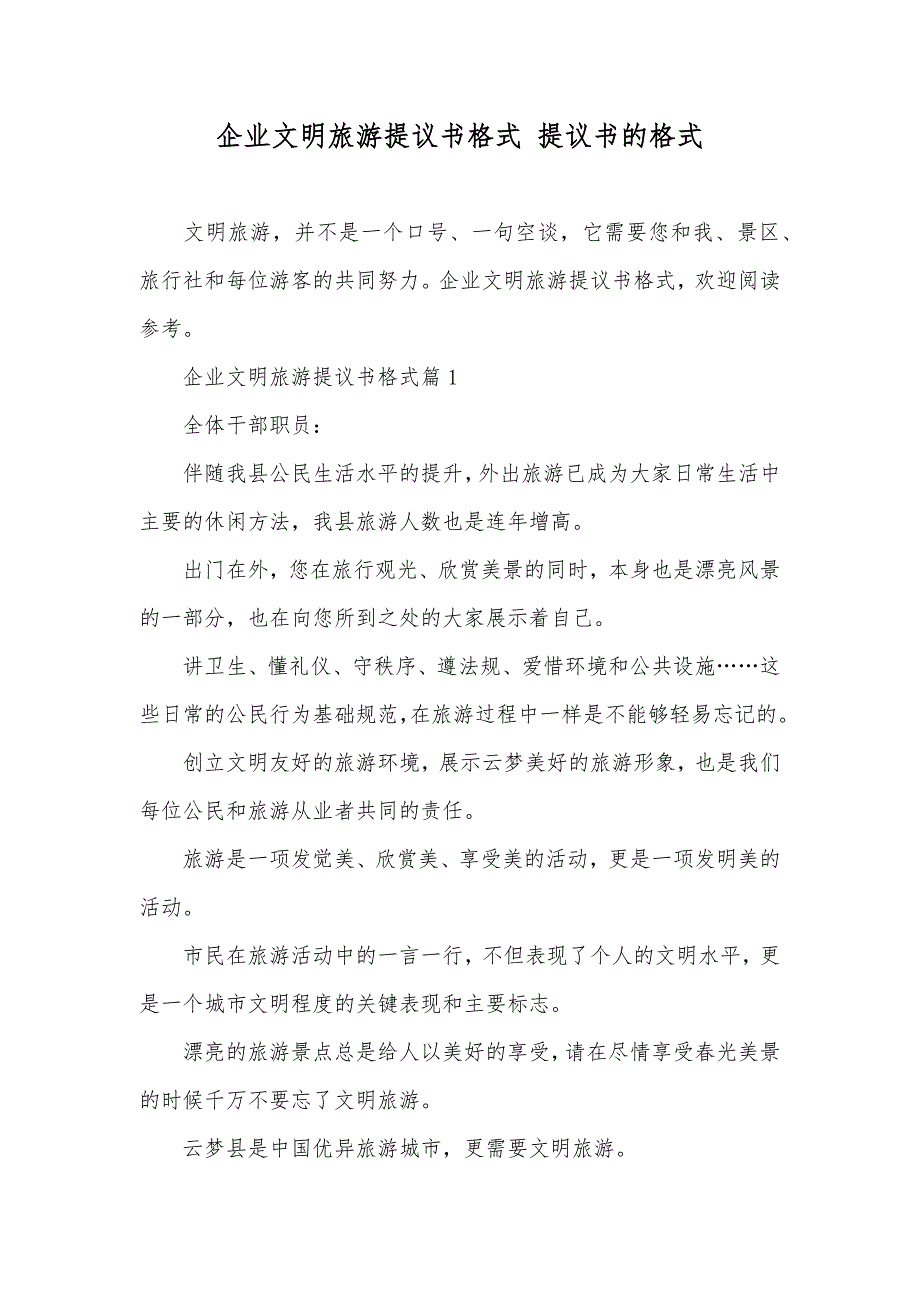 企业文明旅游提议书格式 提议书的格式
文明旅游，并不是一个口号、一句空谈，它需要您和我、景区、
旅行社和每位游客的共同努力。企业文明旅游提议书格式，欢迎阅读
参考。
企业文明旅游提议书格式篇 1
全体干部职员：
伴随我县公民生活水平的提升，外出旅游已成为大家日常生活中
主要的休闲方法，我县旅游人数也是连年增高。
出门在外，您在旅行观光、欣赏美景的同时，本身也是漂亮风景
的一部分，也在向您所到之处的大家展示着自己。
讲卫生、懂礼仪、守秩序、遵法规、爱惜环境和公共设施……这
些日常的公民行为基础规范，在旅游过程中一样是不能够轻易忘记的。
创立文明友好的旅游环境，展示云梦美好的旅游形象，也是我们
每位公民和旅游从业者共同的责任。
旅游是一项发觉美、欣赏美、享受美的活动，更是一项发明美的
活动。
市民在旅游活动中的一言一行，不但表现了个人的文明水平，更
是一个城市文明程度的关键表现和主要标志。
漂亮的旅游景点总是给人以美好的享受，请在尽情享受春光美景
的时候千万不要忘了文明旅游。
云梦县是中国优异旅游城市，更需要文明旅游。